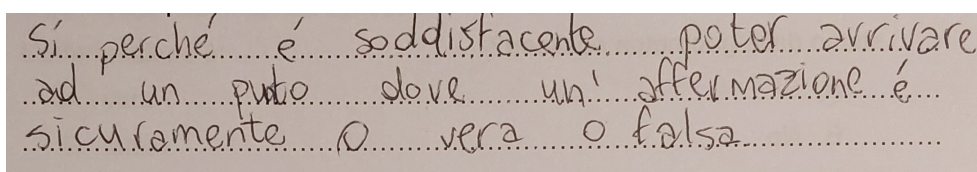 Sí perché é soddisfacente poter arrivare
ad un puto dove un' affermazione é
sicuramente o vera o falsa